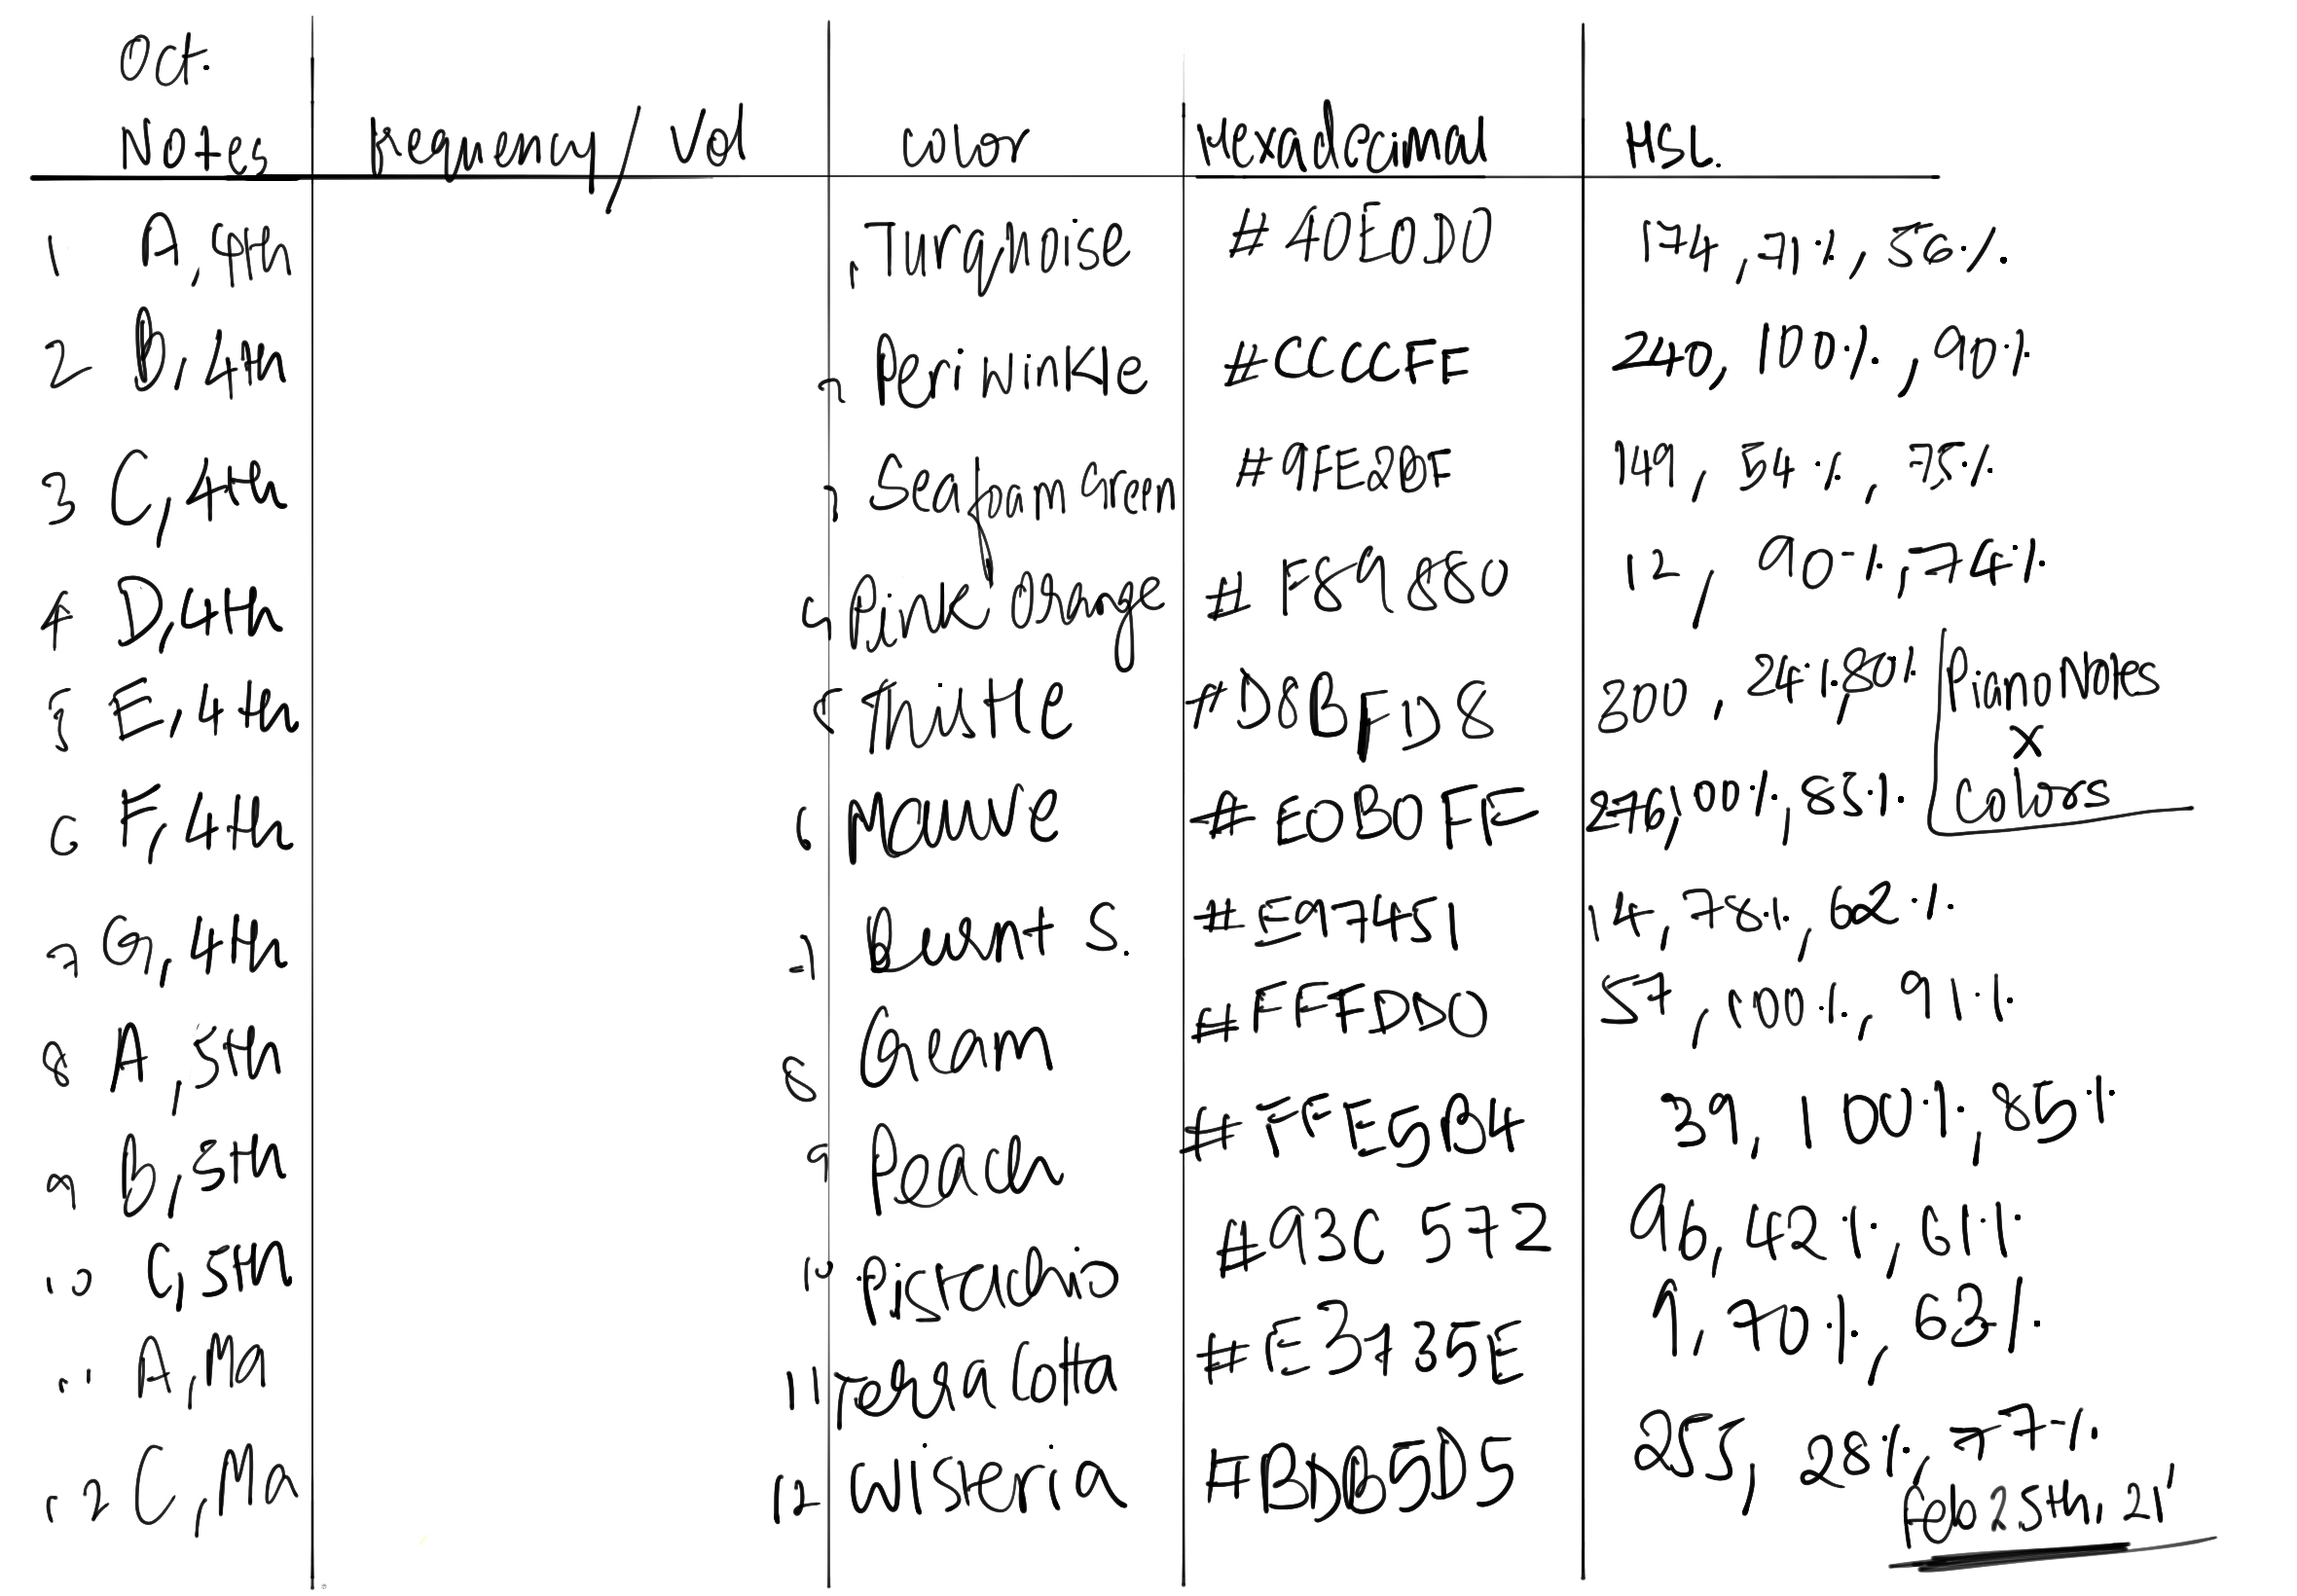 Oct.
Notes Frequency / Vol Color Hexadecimal HSL.
1 A, 4th 1. Turquoise #40E0D0 174, 71%, 56%.
2 B, 4th 2 Periwinkle #CCCCFF 240, 100%, 90%
3 C, 4th 3 Seafoam Green #9FE2BF 149, 54%, 75%
4 D, 4th 4 Pink Orange #F89880 12, 90%, 74%
5 E, 4th 5 Thistle #D8BFD8 300, 24%, 80%
Piano Notes
x
Colors
6 F, 4th 6 Mauve #E0B0FF 276, 100%, 85%
7 G, 4th 7 Burnt S. #E97451 14, 78%, 62%
8 A, 5th 8 Cream #FFFDD0 57, 100%, 91%
9 B, 5th 9 Peach #FFE5B4 39, 100%, 85%
10 C, 5th 10 Pistachio #93C572 96, 42%, 61%
11 A, Ma 11 Terra Cotta #E3735E 9, 70%, 63%
12 C, Ma 12 Wisteria #BDB5D5 255, 28%, 77%
Feb 25th, 21'